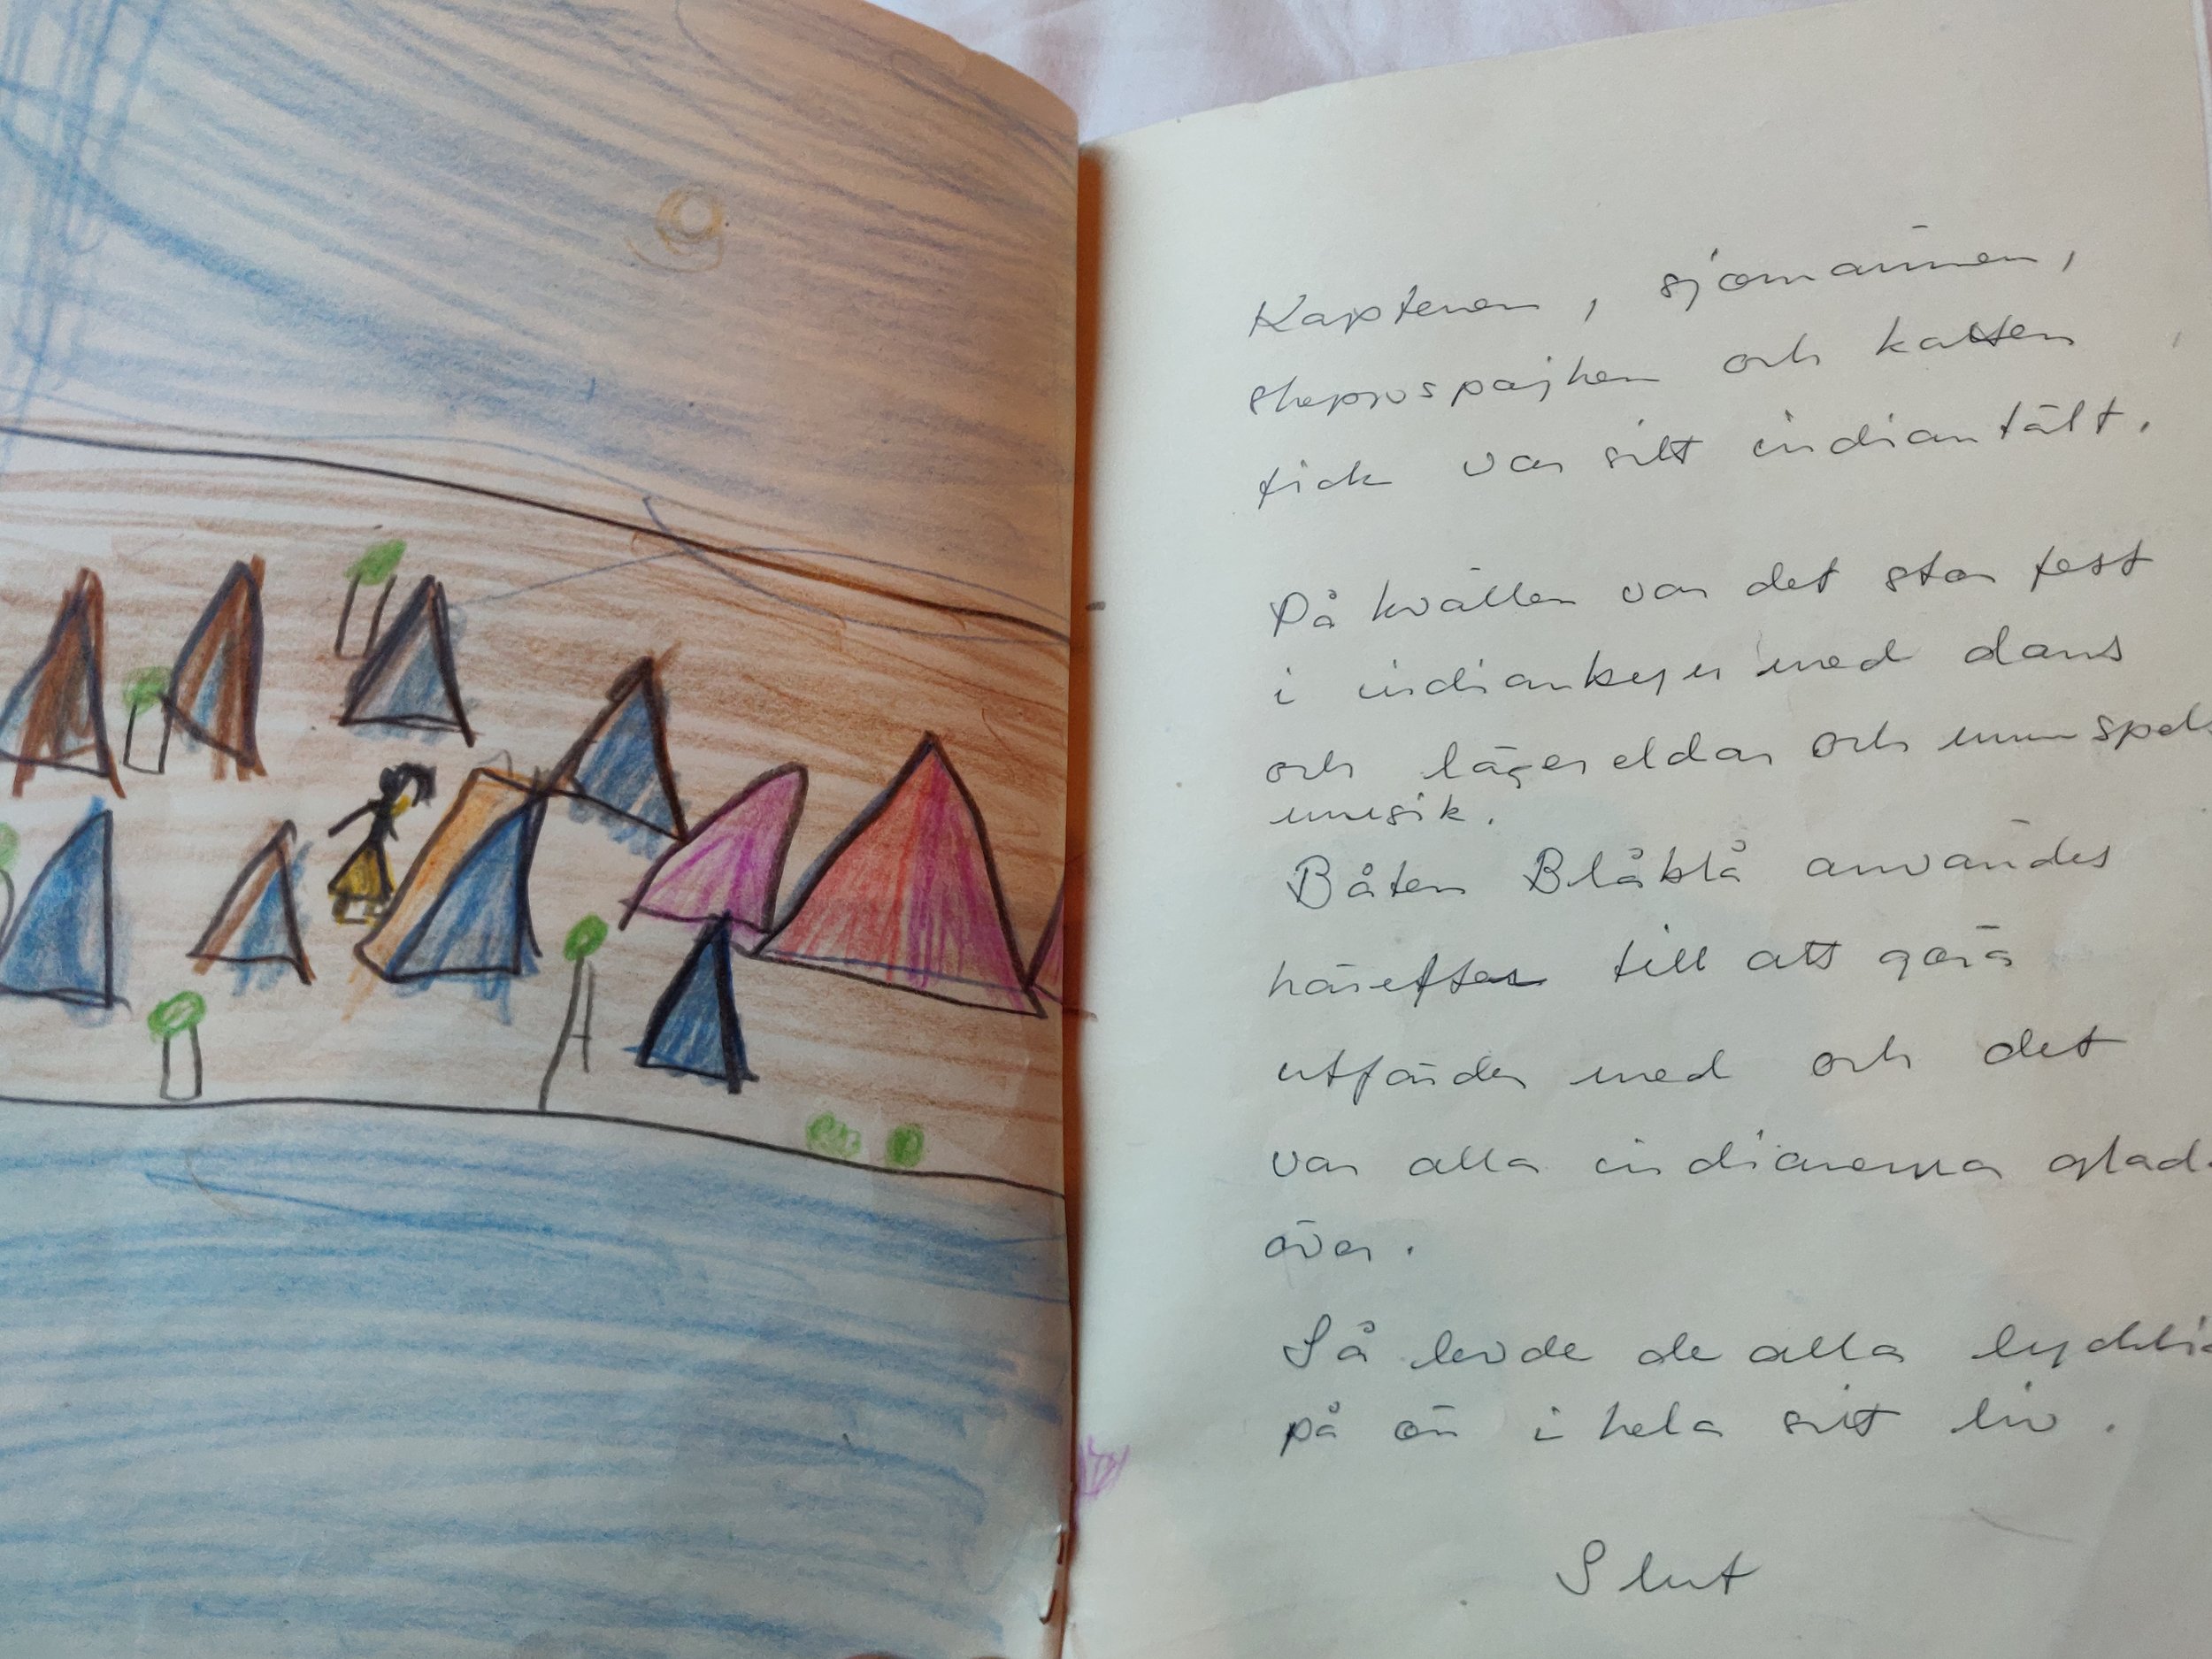 Kaptenen, sjömännen,
skeppspojken och katten
fick var sitt indiantält.
På kvällen var det stor fest
i indianbyn med dans
och lägereldar och munspels
musik.
Båten Blåblå användes
härefter till att göra
utfärder med och det
var alla indianerna glad
över.
Så levde de alla lyckli
på ön i hela sitt liv.
Slut